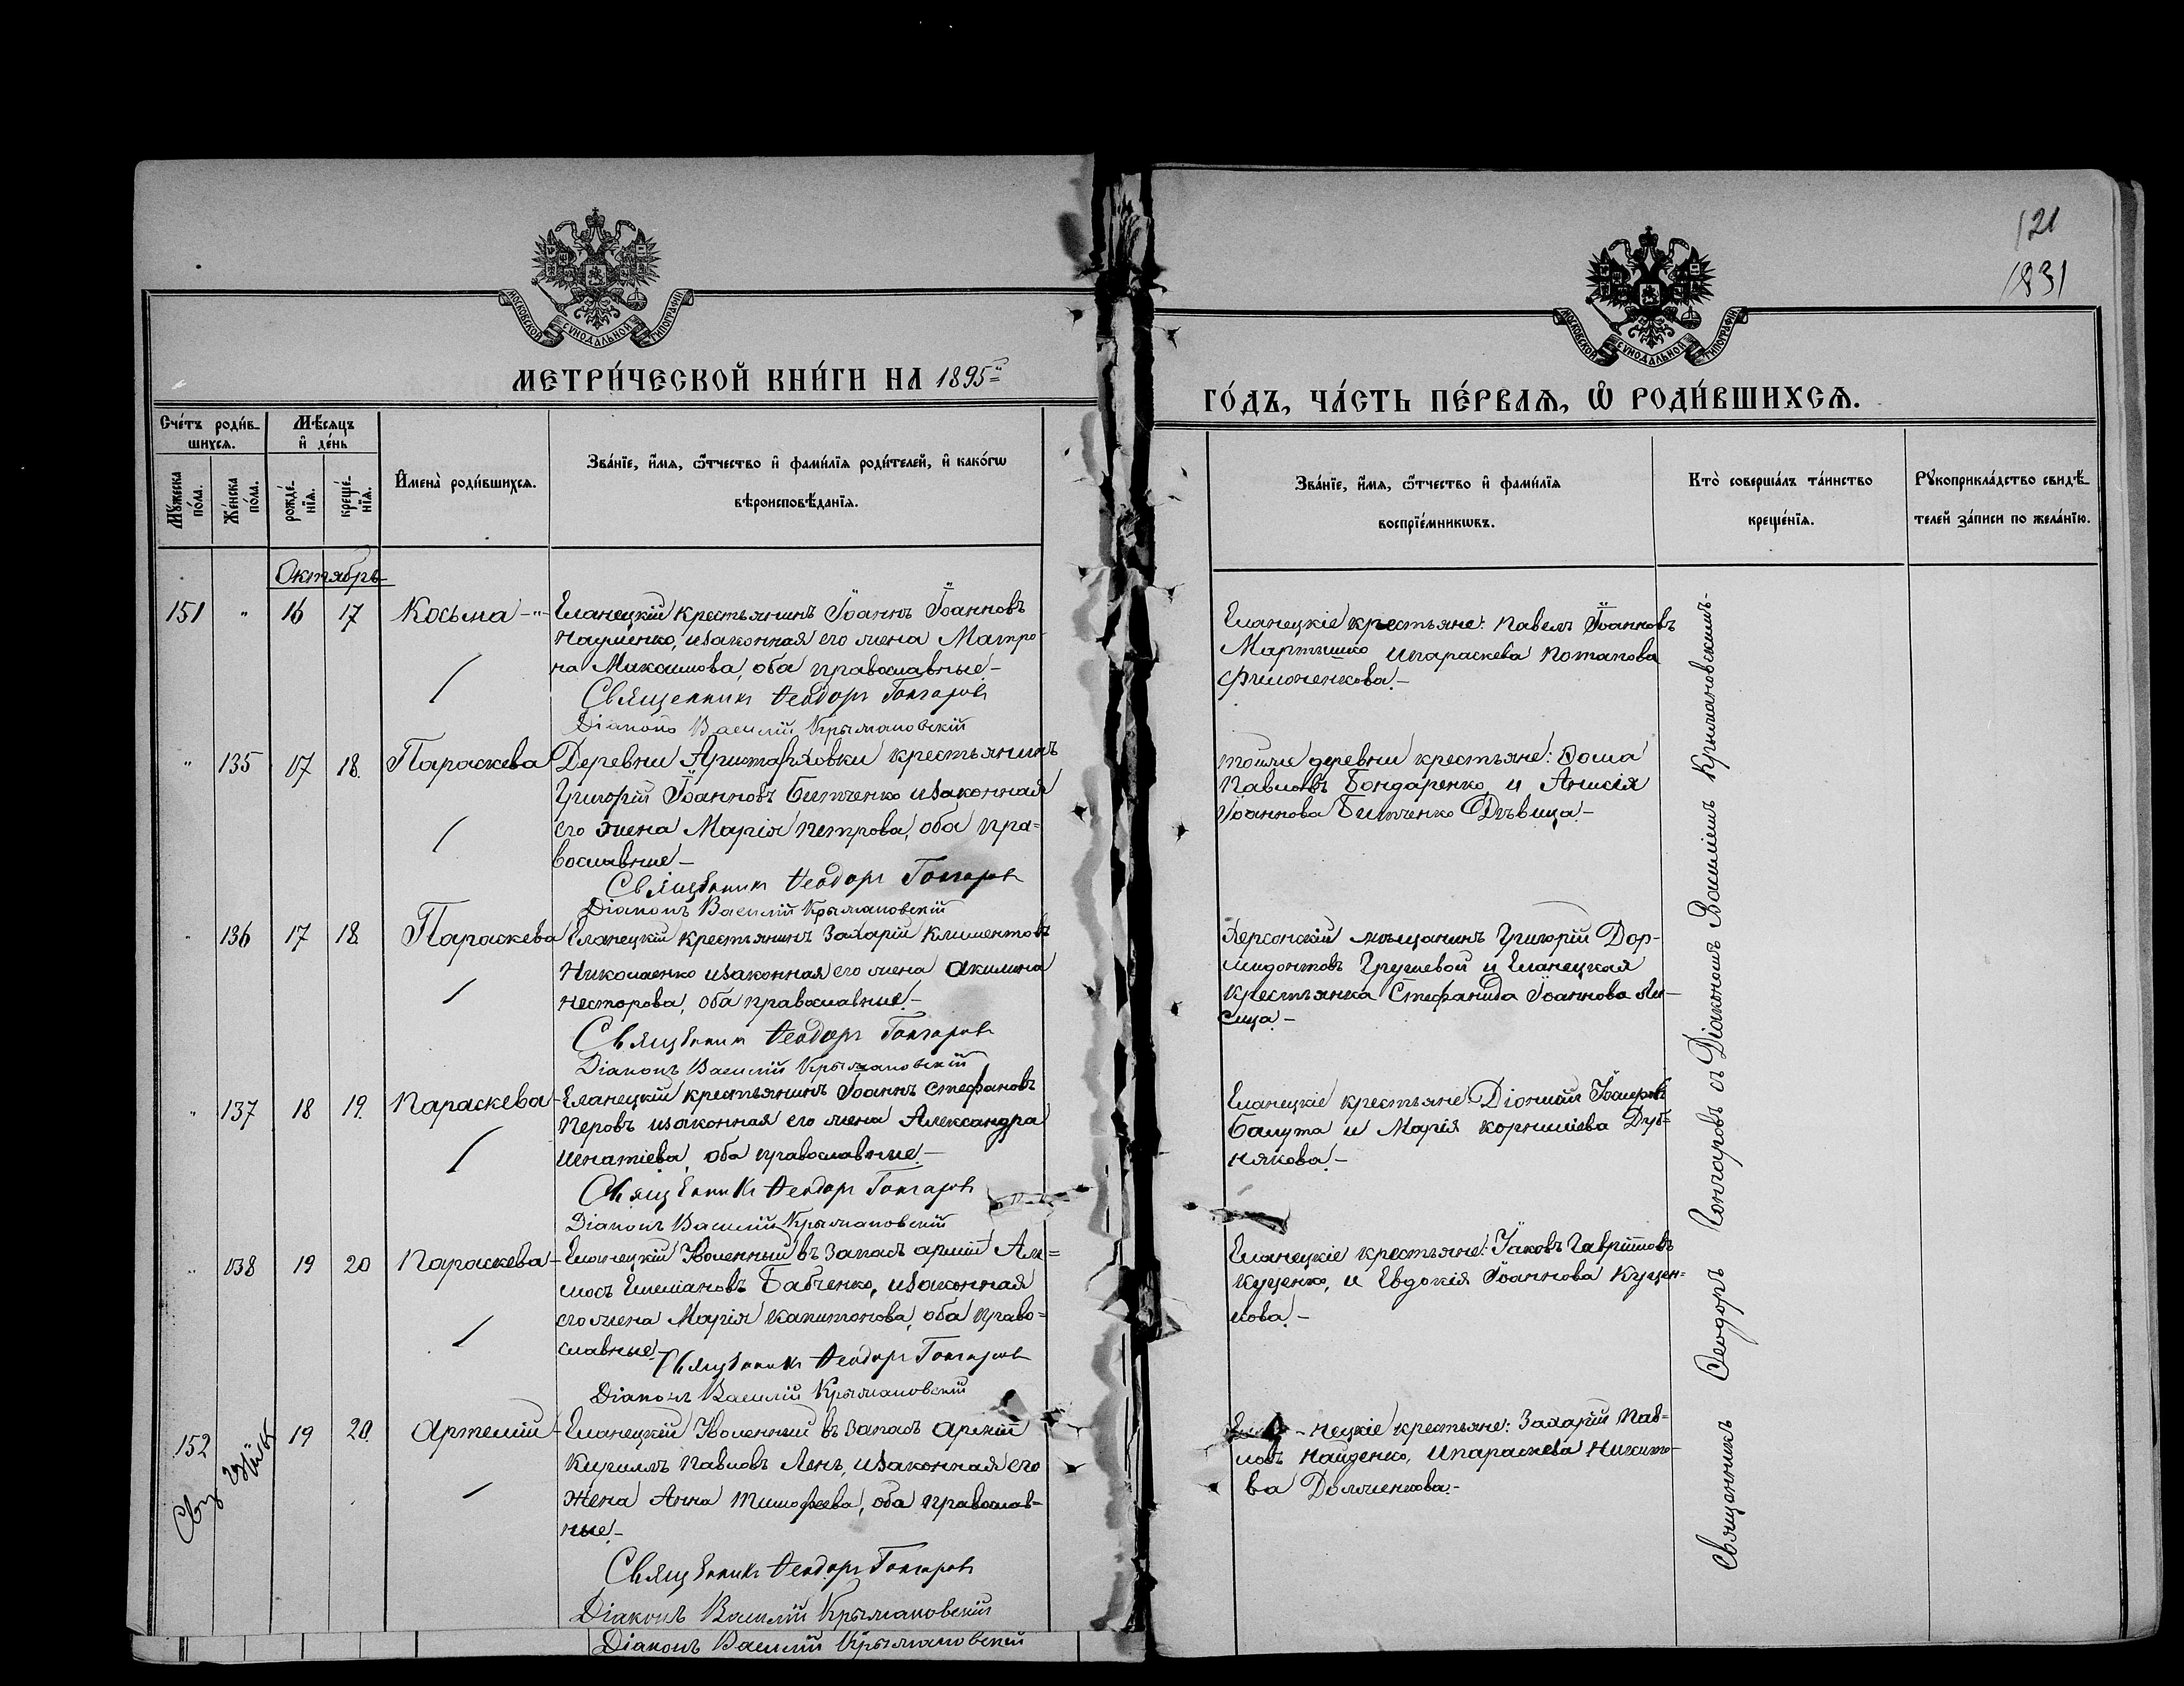 121
1831
МОСКОВСКОЙ СѴНОДАЛЬНОЙ ТИПОГРАФІИ
МОСКОВСКОЙ СѴНОДАЛЬНОЙ ТИПОГРАФІИ
МЕТРИ́ЧЕСКОЙ КНИ́ГИ НА 1895=й
ГО́ДЪ, ЧА́СТЬ ПЕ́РВАѦ, Ѡ҆ РОДИ́ВШИХСѦ.
Сче́тъ роди́в-
шихсѧ.
Мѣ́сѧцъ
и҆ де́нь
Мꙋ́жеска по́ла.
Же́нска по́ла.
рожде́-нїѧ.
креще́-нїѧ.
И҆мена̀ роди́вшихсѧ.
Зва́нїе, и҆́мѧ, ѻ҆́тчество и҆ фами́лїѧ роди́телей, и҆ како́гѡ
вѣроисповѣ́данїѧ.
Зва́нїе, и҆́мѧ, ѻ҆́тчество и҆ фами́лїѧ
воспрїе́мникѡвъ.
Кто̀ соверша́лъ та́инство
креще́нїѧ.
Рꙋкоприкла́дство свидѣ́-
телей за́писи по жела́нїю.
Октябрь
151 " 16 17 Косьма -"- Еланецкій крестьянинъ Іоаннъ Іоанновъ
Науменко, и законная его жена Матро-
на Максимова, оба православные.-
Священникъ Ѳеодоръ Гончаровъ
Діаконъ Василій Крыжановскій
Еланецкіе крестьяне: Павелъ Іоанновъ
Мартышко и Параскева Потапова
Филоненкова.-
" 135 17 18. Параскева Деревни Аристарховки крестьянинъ
Григорій Іоанновъ Битченко и законная
его жена Марія Петрова, оба пра-
вославные -
Священникъ Ѳеодоръ Гончаровъ
Діаконъ Василій Крыжановскій
тойже деревни крестьяне: Ѳома
Павловъ Бондаренко и Анисія
Іоаннова Битченко Дѣвица.-
" 136 17 18. Параскева Еланецкій крестьянинъ Захарій Климентовъ
Николаенко и законная его жена Акилина
Несторова, оба православные.-
Священникъ Ѳеодоръ Гончаровъ
Діаконъ Василій Крыжановскій
Херсонскій мѣщанинъ Григорій Дор-
мидонтовъ Грушевой и Еланецкая
крестьянка Стефанида Іоаннова Ли-
сица.-
" 137 18 19. Параскева - Еланецкій крестьянинъ Іоаннъ Стефановъ
Перовъ и законная его жена Александра
Игнатіева, оба православные.-
Священникъ Ѳеодоръ Гончаровъ
Діаконъ Василій Крыжановскій
Еланецкіе крестьяне: Діонисій
Балута и Марія Корнилiева Дуб-
някова.-
" 138 19 20 Параскева - Еланецкій Уволенный въ запасъ арміи Ам=
мосъ Емеліановъ Бабченко, и законная
его жена Марія Капитонова, оба право=
славные.- Священникъ Ѳеодоръ Гончаровъ
Діаконъ Василій Крыжановскій
Еланецкіе крестьяне: Іаковъ Гавріиловъ
Куценко, и Евдокія Іоаннова Куцен-
кова.-
152 19 20. Артемій - Еланецкій Уволенный въ запасъ арміи
Кириллъ Павловъ Ленъ, и законная его
жена Анна Тимофеева, оба православ-
ные.-
Священникъ Ѳеодоръ Гончаровъ
Діаконъ Василій Крыжановскій
Діаконъ Василій Крыжановскій
-нецкіе крестьяне: Захарій Пав-
ловъ Найденко, и Параскева Никито-
ва Долженкова.-
Священникъ Ѳеодоръ Гончаровъ съ Діакономъ Василіемъ Крыжановскимъ.-